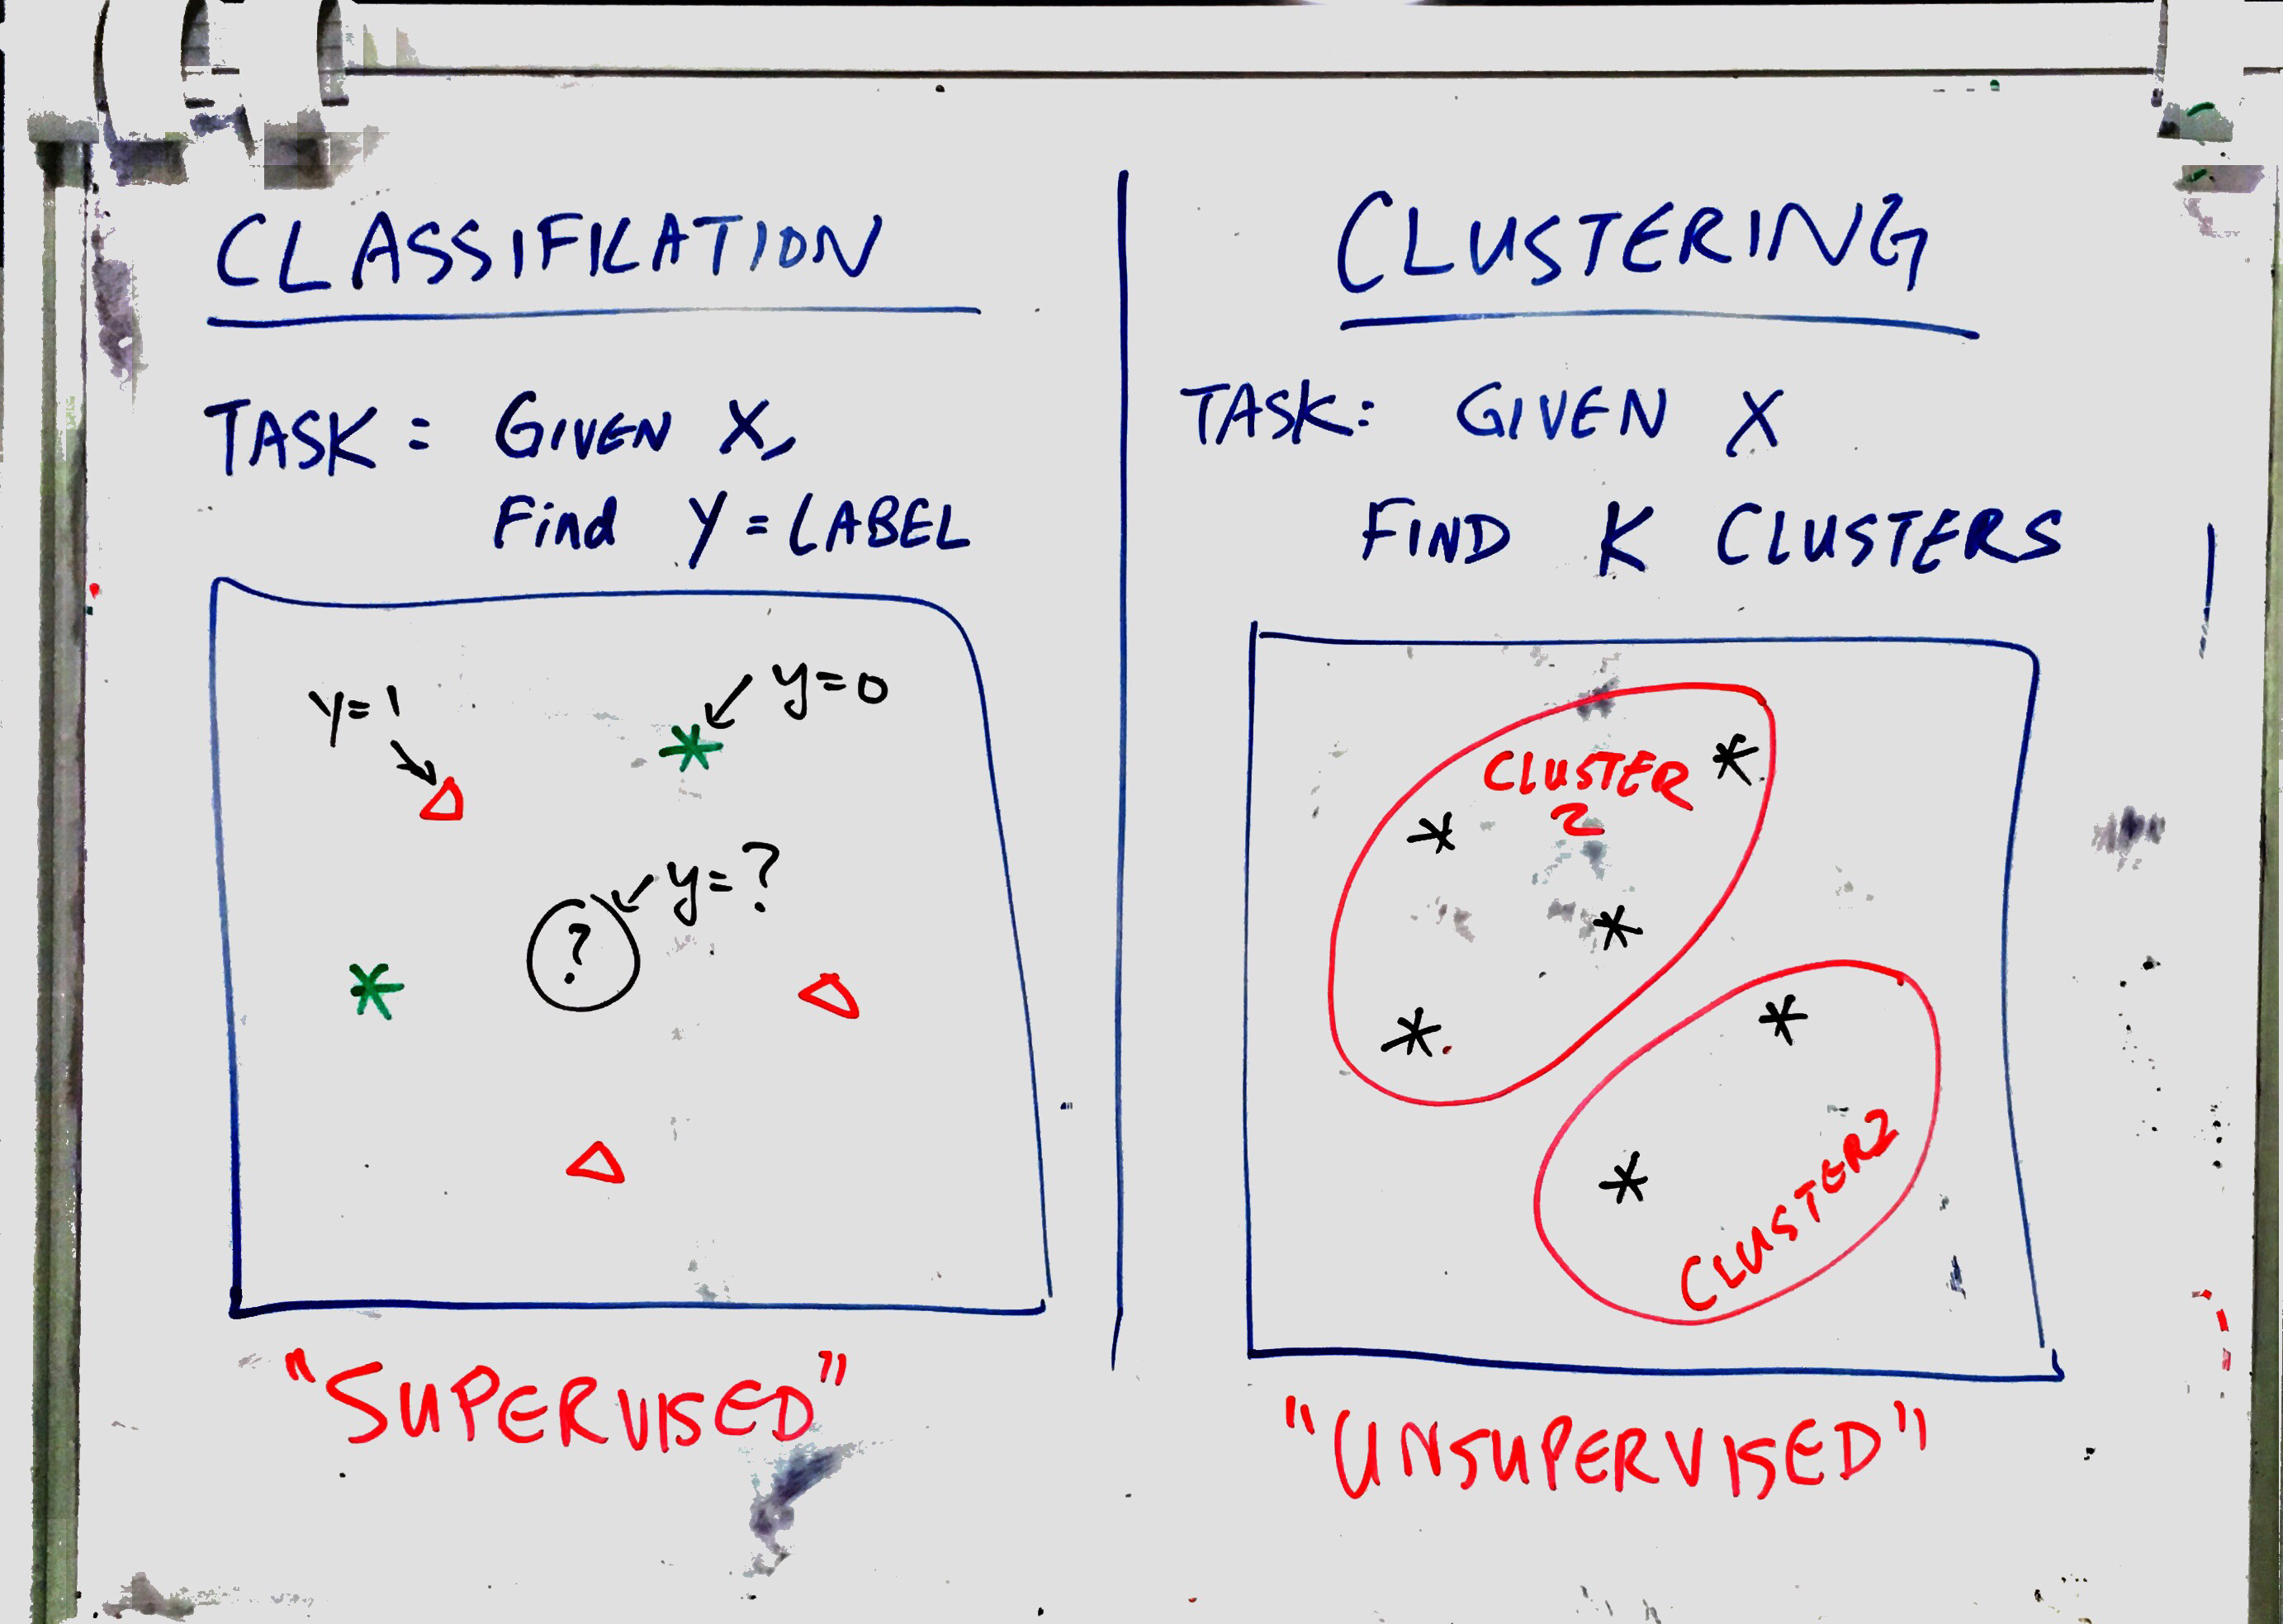 CLASSIFICATION
TASK: GIVEN X,
Find Y = LABEL
y=1
y=0
y=?
?
"SUPERVISED"
CLUSTERING
TASK: GIVEN X
FIND K CLUSTERS
CLUSTER
2
CLUSTER2
"UNSUPERVISED"